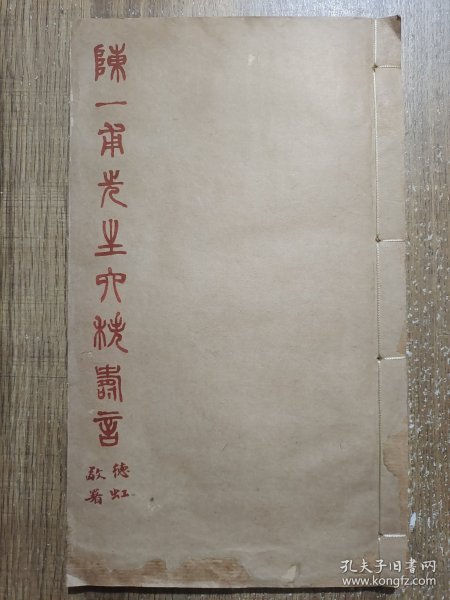 陳一甫先生六秩壽言
德虹
敬署
孔夫子旧书网
www.kongfz.com